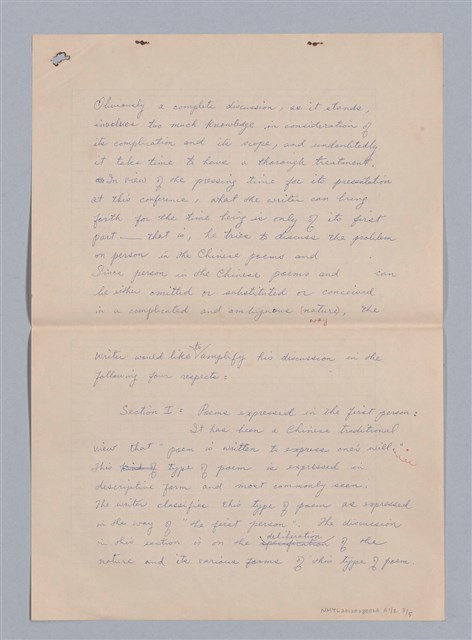 Obviously a complete discussion, as it stands,
involves too much knowledge in consideration of
its complication and its scope, and undoubtedly
it take time to have a thorough treatment.
In view of the pressing time for its presentation
at this conference, what the writer can bring
forth for the time being is only of its first
part — that is, he tries to discuss the problem
on person in the Chinese poems and
Since person in the Chinese poems and can
be either omitted or substituted or conceived
in a complicated and ambiguous nature, the
way
writer would like to examplify his discussion in the
following four respects:
Section I: Poems expressed in the first person:
It has been a Chinese traditional
view that "poem is written to express one's will".
This kind of type of poem is expressed in
descriptive form and most commonly seen.
The writer classifies this type of poem as expressed
in the way of "the first person". The discussion
in this section is on the specification deliberation of the
nature and its various forms of this type of poem.